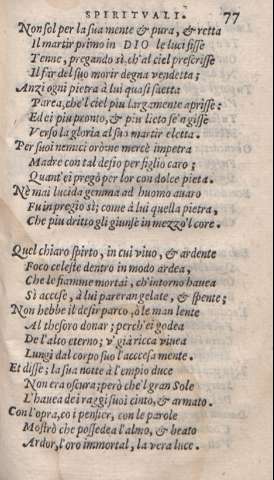 SPIRITVALI. 77
Non sol per la sua mente & pura, & retta
Il martir primo in DIO le luci fisse
Tenne, pregando sì, ch'al ciel prescrisse
Il far del suo morir degna vendetta;
Anzi ogni pietra à lui quasi saetta
Parea, che'l ciel piu largamente aprisse:
Ed ei piu pronto, & piu lieto se'n gisse
Verso la gloria al suo martir eletta.
Per suoi nemici or ò ne mercè impetra
Madre con tal desio per figlio caro;
Quant'ei pregò per lor con dolce pieta.
Nè mai lucida gemma ad huomo auaro
Fu in pregio sì; come à lui quella pietra,
Che piu dritto gli giunse in mezzo'l core.
Quel chiaro spirto, in cui viuo, & ardente
Foco celeste dentro in modo ardea,
Che le fiamme mortai, ch'intorno hauea
Sì accese, à lui parer an gelate, & spente;
Non hebbe il desir parco, ò le man lente
Al thesoro donar; perch'ei godea
De l'alto eterno; v' già ricca viuea
Lungi dal corpo suo l'acccesa mente.
Et disse; la sua notte à l'empio duce
Non era oscura; però che'l gran Sole
L'hauea dei raggi suoi cinto, & armato.
Con l'opra, co i pensier, con le parole
Mostrò che possedea l'almo, & beato
Ardor, l'oro immortal, la vera luce.